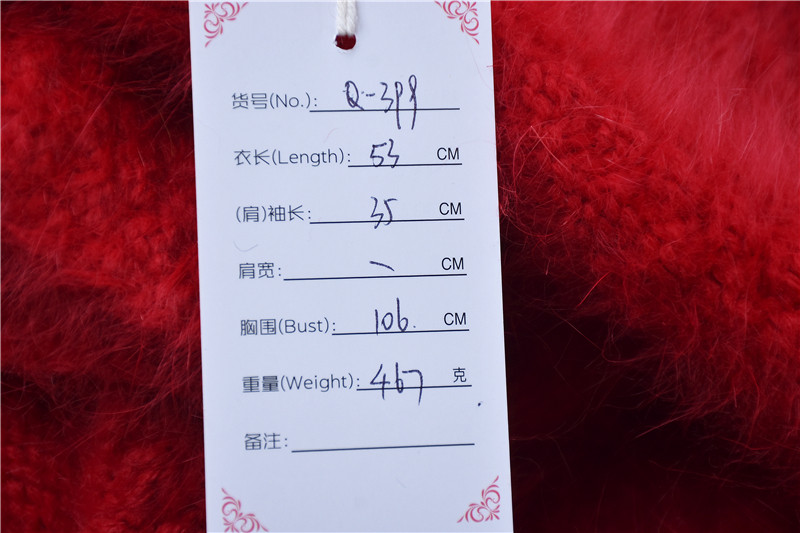 货号(No.): Q-399
衣长(Length): 53 CM
(肩)袖长: 35 CM
肩宽: — CM
胸围(Bust): 106. CM
重量(Weight): 467 克
备注: